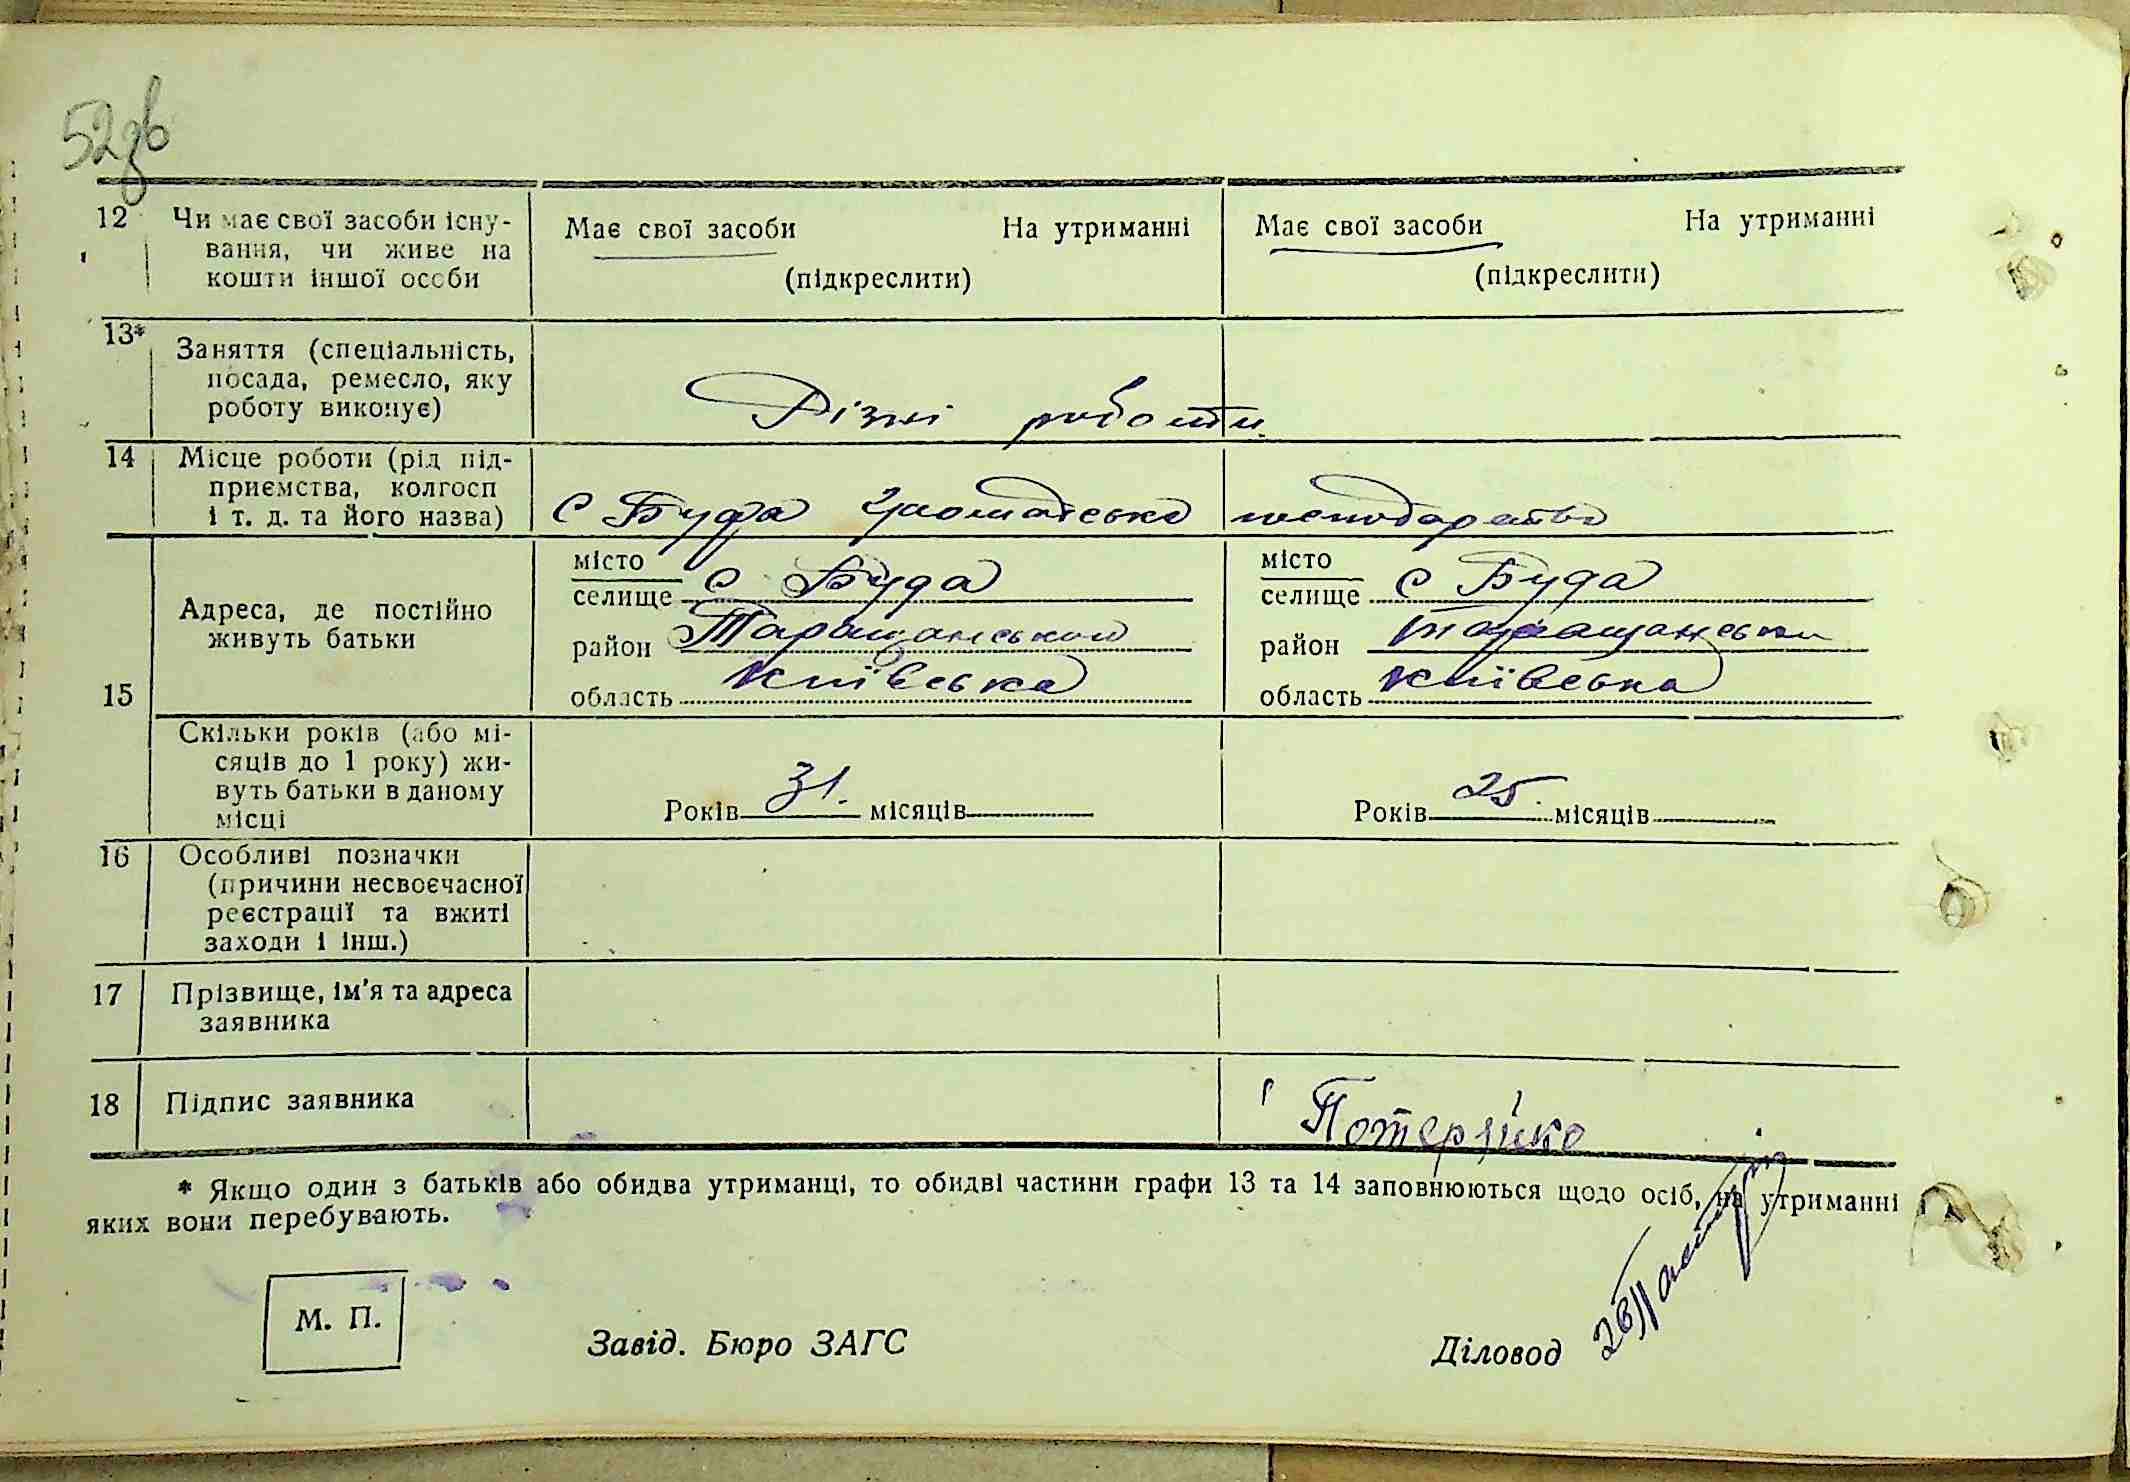 52зв
12 Чи має свої засоби існу- Має свої засоби На утриманні Має свої засоби На утриманні
вання, чи живе на
кошти іншої особи (підкреслити) (підкреслити)
13* Заняття (спеціальність,
посада, ремесло, яку
роботу виконує) Різні роботи
14 Місце роботи (рід під-
приємства, колгосп
і т. д. та його назва) с Буда громадське господарство
місто місто
селище с Буда селище с Буда
Адреса, де постійно
живуть батьки район Таращанський район Таращанський
15 область Київська область Київська
Скільки років (або мі-
сяців до 1 року) жи-
вуть батьки в даному Років 31. місяців Років 25. місяців
місці
16 Особливі позначки
(причини несвоєчасної
реєстрації та вжиті
заходи і інш.)
17 Прізвище, ім'я та адреса
заявника
18 Підпис заявника Потерйко
* Якщо один з батьків або обидва утриманці, то обидві частини графи 13 та 14 заповнюються щодо осіб, на утриманні
яких вони перебувають.
М. П. Завід. Бюро ЗАГС Діловод